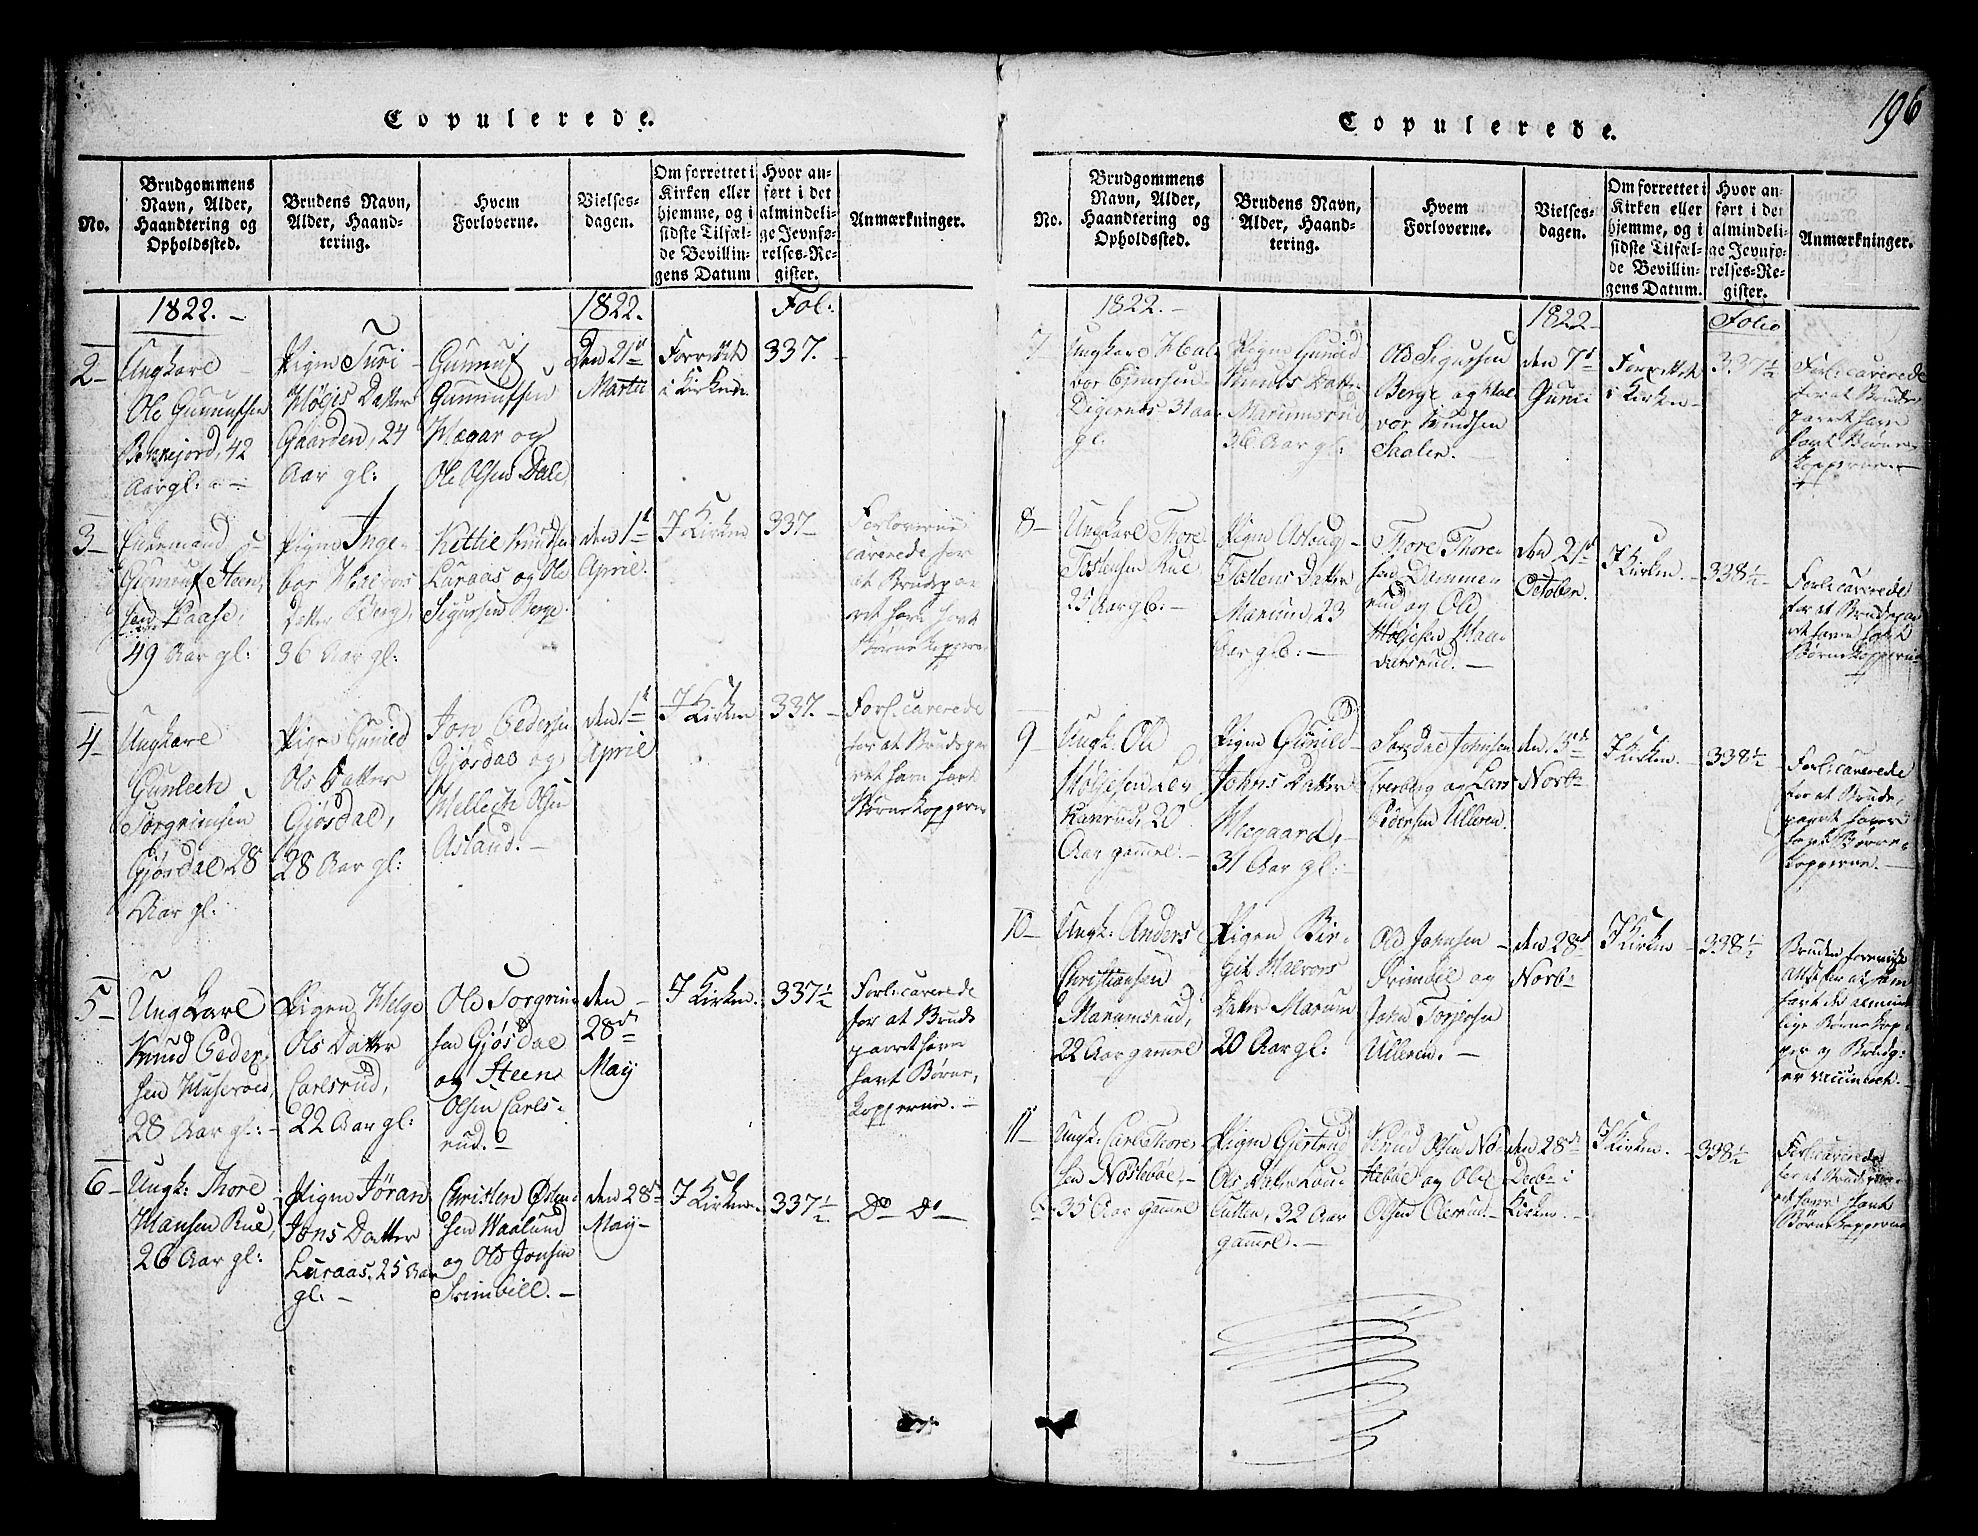 196
Copulerede.
No.
Brudgommens Navn, Alder, Haandtering og Opholdssted.
Brudens Navn, Alder, Haandtering.
Hvem Forloverne.
Vielsesdagen.
Om forrettet i Kirken eller hjemme, og i sidste Tilfælde Bevillingens Datum
Hvor anført i det almindelige Jevnførelses-Register.
Anmærkninger.
1822. –
1822.
Fol:
2 –
Ungkarl
Ole Gunnufsen
42
Aar gl: –
Pigen Turi
Datter
Gaarden, 24
Aar gl:
Gunnuf
Gunnufsen
Hægar og
Ole Olsen Dale
Den 21de
Martii
Forrettet
i Kirken
337.
3 –
Enkemand
Gunnuf Steen
sen
49 Aar gl:
Pigen Inge-
bor Halvors
Datter Berg,
36 Aar gl:
Kettil Knudsen
Luraas og Ole
Sigursen Berge.
den 1ste
April.
I Kirken
337 –
Forloverne
caverede for
at Brudepa
ret have havt
Børnekopperne
4 –
Ungkarl
Gunlech
Torgrimsen
Gjøsdal, 28
Aar gl:
Pigen Gunild
Ols Datter
Gjøsdal,
28 Aar gl:
Jon Pedersen
Gjøsdal og
Mellech Olsen
Asland. –
den 1ste
April
I Kirken
337. –
Forl: caverede
for at Brudepa
ret have havt
Børnekopperne
5 –
Ungkarl
Knud Peder
sen Husevold,
28 Aar gl: –
Pigen Helge
Ols Datter
Carlsrud,
22 Aar gl:
Ole Torgrim
sen Gjøsdal
og Steen
Olsen Carls-
rud.
den –
28de
May
I Kirken.
337½
Forl: caverede
for at Brude
parret have
havt Børne,
kopperne. –
6 –
Ungk: Thore
Hansen Rue,
26 Aar gl:
Pigen Jøran
Jons Datter
Luraas, 25 Aar
gl: –
Christen Østen-
sen Haalund
og Ole Jonsen
Trimbill. –
den 28de
May –
I Kirken.
337½
Do Do –
Copulerede.
No.
Brudgommens Navn, Alder, Haandtering og Opholdssted.
Brudens Navn, Alder, Haandtering.
Hvem Forloverne.
Vielsesdagen.
Om forrettet i Kirken eller hjemme, og i sidste Tilfælde Bevillingens Datum.
Hvor anført i det almindelige Jevnførelses-Register.
Anmærkninger.
1822. –
1822 –
Folio
7
Ungkarl Hal-
vor Ejnersen
Digernes 31 Aar
gl.
Pigen Gunild
Knuds Datter
36 Aar gl:
Ole Sigursen
Berge og Hal
vor Knudsen
Saalen. –
den 7de
Junii
Forrettet
i Kirken –
337½
Forl: caverede
for at Brude
parret have
havt Børne
kopperne –
8 –
Ungkarl Thore
Tostensen Rue
25 Aar g6. –
Pigen Aslaug
Tostens Datter
Marum, 23
Aar g6: –
Thore Thore
sen Dammen
rud og Ole
den 21de
October.
I Kirken –
338½ –
Forl: caverede
for at Brudepar
ret have havt
Børnekopperne
9 –
Ungk: Ole
20
Aar gammel. –
Pigen Gunild
Johns Datter
Moegaard, –
31 Aar gl: –
Johnsen
og Lars
Pedersen Ulleren.
den 15de
Novbr
I Kirken. –
338½
Forl: caverede
for at Brude,
parret have
havt Børne-
kopperne. –
10 –
Ungk: Anders
Christiansen
Marumsrud,
22 Aar gammel
Pigen Bir-
git Halvors
Datter Marum
20 Aar gl:
Ole Johnsen –
Trimbil og
John Torjersen
Ulleren. –
den 28de
Novbr
I Kirken –
338½
Bruden foreviste
Attest for at have
havt de almind
lige Børnekop-
per og Brudg:
er vaccineret. –
11 –
Ungk: Carl Thore-
sen Nøsteboe, –
35 Aar gammel
Pigen Giertrud
Ols Datter
32 Aar
gammel. –
Knud Olsen
og Ole
Olsen
den 28de
Decbr i
Kirken. –
I Kirken. –
338½
Forl: caverede
for at Brudepar
ret have havt
Børnekopperne